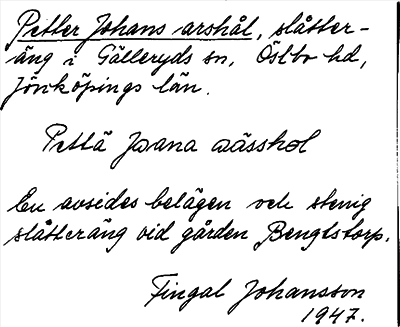 Petter Johans arshål, slåtter-
äng i Gälleryds sn, Östbo hd,
Jönköpings län.
Pettä Joana aässhol
En avsides belägen och stenig
slåtteräng vid gården Bengtstorp.
Fingal Johansson
1947.